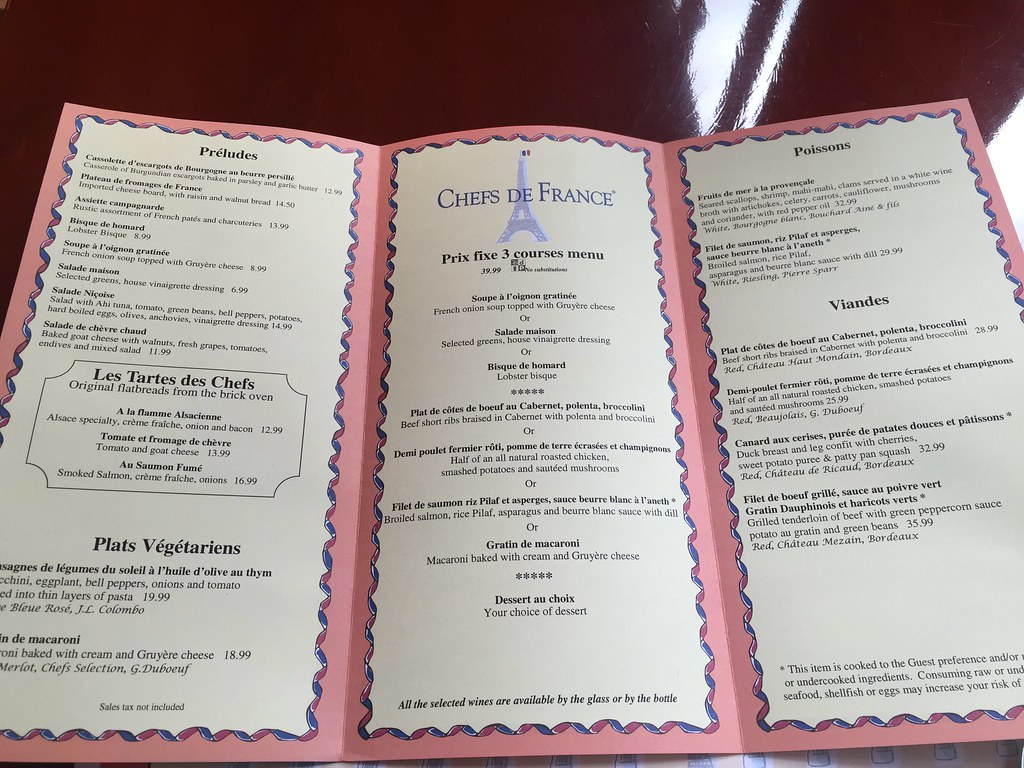 Préludes
Cassolette d'escargots de Bourgogne au beurre persillé
Casserole of Burgundian escargots baked in parsley and garlic butter 12.99
Plateau de fromages de France
Imported cheese board, with raisin and walnut bread 14.50
Assiette campagnarde
Rustic assortment of French patés and charcuteries 13.99
Bisque de homard
Lobster Bisque 8.99
Soupe à l'oignon gratinée
French onion soup topped with Gruyère cheese 8.99
Salade maison
Selected greens, house vinaigrette dressing 6.99
Salade Niçoise
Salad with Ahi tuna, tomato, green beans, bell peppers, potatoes,
hard boiled eggs, olives, anchovies, vinaigrette dressing 14.99
Salade de chèvre chaud
Baked goat cheese with walnuts, fresh grapes, tomatoes,
endives and mixed salad 11.99
Les Tartes des Chefs
Original flatbreads from the brick oven
A la flamme Alsacienne
Alsace specialty, crème fraîche, onion and bacon 12.99
Tomate et fromage de chèvre
Tomato and goat cheese 13.99
Au Saumon Fumé
Smoked Salmon, crème fraîche, onions 16.99
Plats Végétariens
sagnes de légumes du soleil à l'huile d'olive au thym
cchini, eggplant, bell peppers, onions and tomato
ed into thin layers of pasta 19.99
e Bleue Rosé, J.L. Colombo
in de macaroni
roni baked with cream and Gruyère cheese 18.99
Merlot, Chefs Selection, G.Duboeuf
Sales tax not included
CHEFS DE FRANCE®
Prix fixe 3 courses menu
39.99 No substitutions
Soupe à l'oignon gratinée
French onion soup topped with Gruyère cheese
Or
Salade maison
Selected greens, house vinaigrette dressing
Or
Bisque de homard
Lobster bisque
*****
Plat de côtes de boeuf au Cabernet, polenta, broccolini
Beef short ribs braised in Cabernet with polenta and broccolini
Or
Demi poulet fermier rôti, pomme de terre écrasées et champignons
Half of an all natural roasted chicken,
smashed potatoes and sautéed mushrooms
Or
Filet de saumon riz Pilaf et asperges, sauce beurre blanc à l'aneth *
Broiled salmon, rice Pilaf, asparagus and beurre blanc sauce with dill
Or
Gratin de macaroni
Macaroni baked with cream and Gruyère cheese
*****
Dessert au choix
Your choice of dessert
All the selected wines are available by the glass or by the bottle
Poissons
Fruits de mer à la provençale
Seared scallops, shrimp, mahi-mahi, clams served in a white wine
broth with artichokes, celery, carrots, cauliflower, mushrooms
and coriander, with red pepper oil 32.99
White, Bourgogne blanc, Bouchard Ainé & fils
Filet de saumon, riz Pilaf et asperges,
sauce beurre blanc à l'aneth *
Broiled salmon, rice Pilaf,
asparagus and beurre blanc sauce with dill 29.99
White, Riesling, Pierre Sparr
Viandes
Plat de côtes de boeuf au Cabernet, polenta, broccolini
Beef short ribs braised in Cabernet with polenta and broccolini 28.99
Red, Château Haut Mondain, Bordeaux
Demi-poulet fermier rôti, pomme de terre écrasées et champignons
Half of an all natural roasted chicken, smashed potatoes
and sautéed mushrooms 25.99
Red, Beaujolais, G. Duboeuf
Canard aux cerises, purée de patates douces et pâtissons *
Duck breast and leg confit with cherries,
sweet potato puree & patty pan squash 32.99
Red, Château de Ricaud, Bordeaux
Filet de boeuf grillé, sauce au poivre vert
Gratin Dauphinois et haricots verts *
Grilled tenderloin of beef with green peppercorn sauce
potato au gratin and green beans 35.99
Red, Château Mezain, Bordeaux
* This item is cooked to the Guest preference and/or
or undercooked ingredients. Consuming raw or und
seafood, shellfish or eggs may increase your risk of